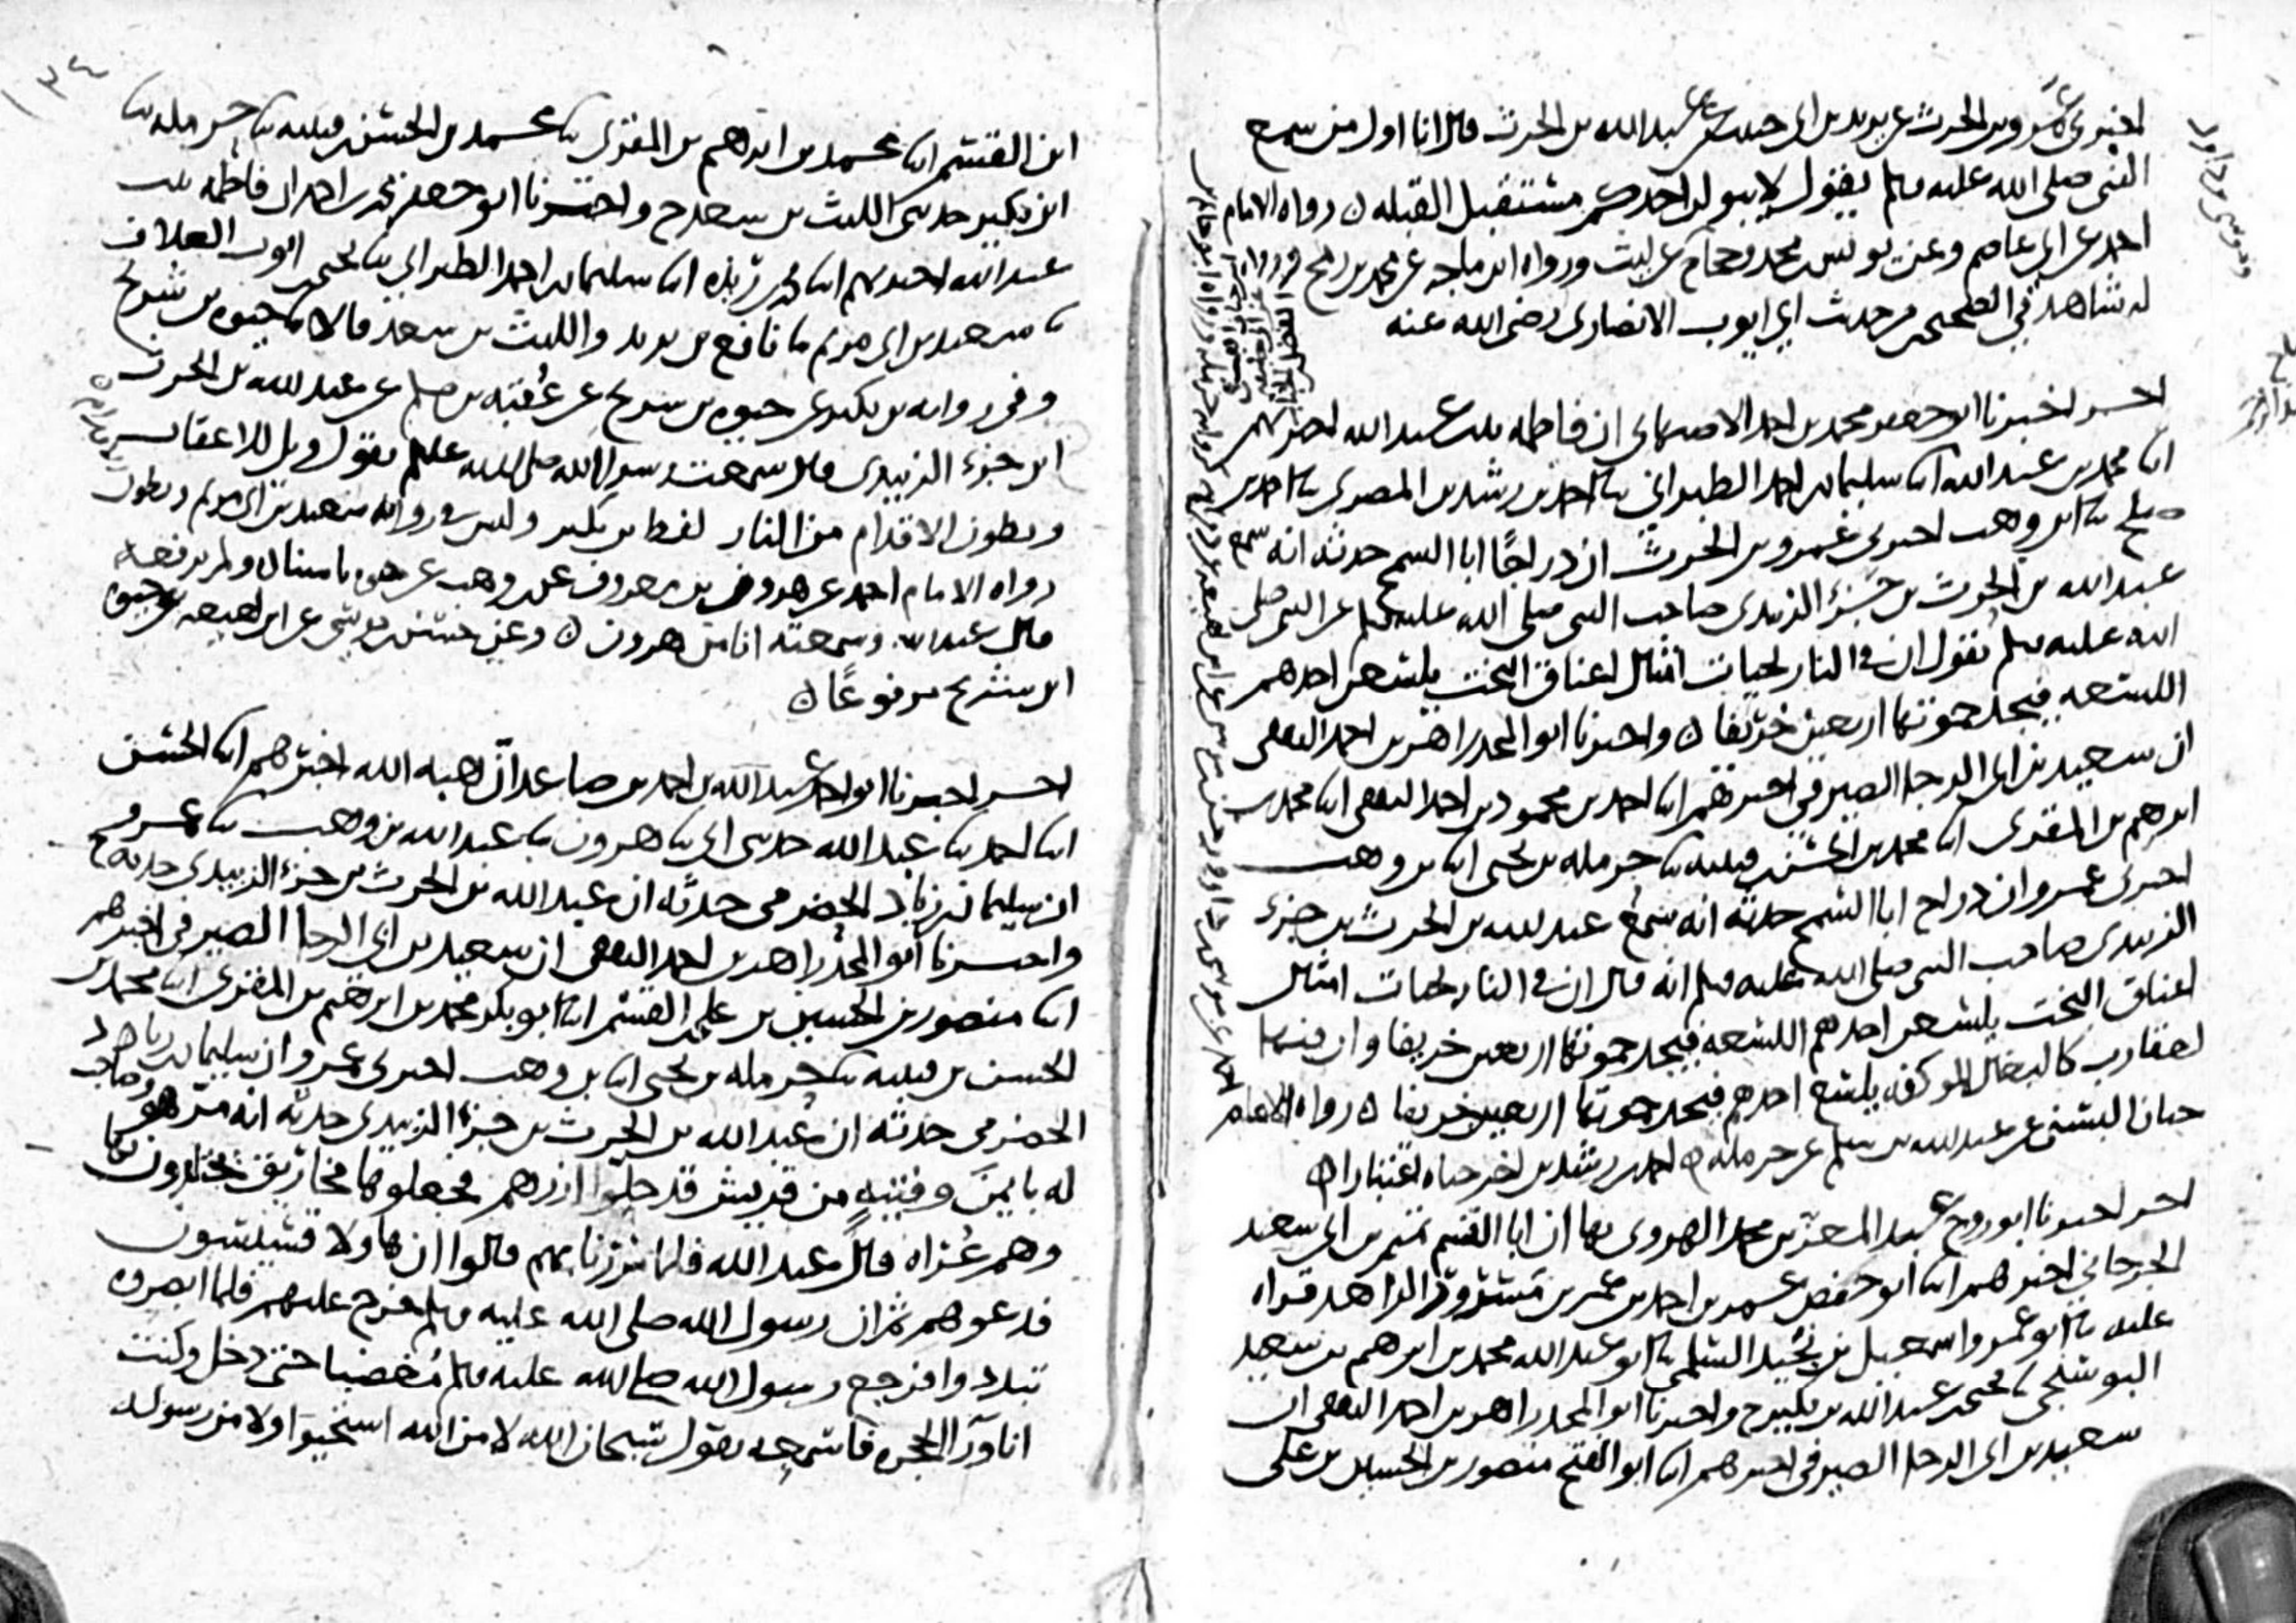 اخبرني عمرو بن الحرث عن يزيد بن ابي حبيب عن عبد الله بن الحرث قال انا اول من سمع
النبي صلى الله عليه وسلم يقول لا يبولن احدكم مستقبل القبله ٥ رواه الامام
احمد عن ابي عاصم وعن يونس بن محمد وحجاج عن ليث ورواه ابن ماجه عن محمد بن رمح
له شاهد في الصحيحين من حديث ابي ايوب الانصاري رضي الله عنه
اخبرنا ابو جعفر محمد بن احمد الاصبهاني ان فاطمه بنت عبد الله اخبرتهم
ابنا محمد بن عبد الله ابنا سليمان بن احمد الطبراني ثنا احمد بن رشدين المصري ثنا احمد بن
صلح ثنا ابن وهب اخبرني عمرو بن الحرث ان دراجا ابا السمح حدثه انه سمع
عبد الله بن الحرث بن جزء الزبيدي صاحب النبي صلى الله عليه وسلم عن النبي صلى
الله عليه وسلم يقول ان في النار لحيات امثال اعناق البخت يلسعن احدهم
اللسعه فيجد حموتها اربعين خريفا ٥ واخبرنا ابو المجد زاهر بن احمد الثقفي
ان سعيد بن ابي الرجا الصيرفي اخبرهم ابنا احمد بن محمود بن احمد الثقفي ابنا محمد بن
ابرهيم بن المقرى ابنا محمد بن الحسن بن قتيبه ثنا حرمله بن يحيى ابنا بن وهب
اخبرني عمرو ان دراج ابا السمح حدثه انه سمع عبد الله بن الحرث بن جزء
الزبيدي صاحب النبي صلى الله عليه وسلم انه قال ان في النار لحيات امثال
اعناق البخت يلسعن احدهم اللسعه فيجد حموتها اربعين خريفا وان فيها
لعقارب كالبغال الموكفه يلسع احدهم فيجد حموتها اربعين خريفا ٥ رواه الامام
حبان البستي عن عبد الله بن سلم عن حرمله ٥ احمد بن رشدين اخرجناه اعتبارا ٥
اخبرنا ابو روح عبد المعز بن محمد الهروي بها ان ابا القسم تميم بن ابي سعيد
الجرجاني اخبرهم ابنا ابو حفص عمر بن احمد بن عمر بن مسرور الزاهد قراه
عليه ثنا ابو عمرو اسمعيل بن نجيد السلمي ثنا ابو عبد الله محمد بن ابرهيم بن سعيد
البوشنجي ثنا يحيى بن عبد الله بن بكير ح واخبرنا ابو المجد زاهر بن احمد الثقفي ان
سعيد بن ابي الرجا الصيرفي اخبرهم ابنا ابو الفتح منصور بن الحسين بن علي
١٣٤
ابن القسم ابنا محمد بن ابرهيم بن المقرى ثنا محمد بن الحسن بن قتيبه ثنا حرمله ثنا
ابن بكير حدثني الليث بن سعد ح واخبرنا ابو جعفر محمد بن احمد ان فاطمه بنت
عبد الله اخبرتهم ابنا محمد بن ريذه ابنا سليمان بن احمد الطبراني ثنا يحيى بن ايوب العلاف
ثنا سعيد بن ابي مريم ثنا نافع بن يزيد والليث بن سعد قالا ثنا حيوه بن شريح
وفي روايه بن بكير عن حيوه بن شريح عن عقبه بن مسلم عن عبد الله بن الحرث
ابن جزء الزبيدي قال سمعت رسول الله صلى الله عليه وسلم يقول ويل للاعقاب
وبطون الاقدام من النار لفظ بن بكير وليس في روايه سعيد بن ابي مريم وبطون
رواه الامام احمد عن هرون بن معروف عن بن وهب عن حيوه باسناده ولم يرفعه
قال عبد الله وسمعته انا من هرون ٥ وعن حسن بن موسى عن ابن لهيعه عن حيوه
ابن شريح مرفوعا ٥
اخبرنا ابو احمد عبد الله بن احمد بن صاعد ان هبه الله اخبرهم ابنا الحسن
ابنا احمد ثنا عبد الله حدثني ابي ثنا هرون ثنا عبد الله بن وهب ثنا عمرو
ان سليمان بن زياد الحضرمي حدثه ان عبد الله بن الحرث بن جزء الزبيدي حدثه ح
واخبرنا ابو المجد زاهر بن احمد الثقفي ان سعيد بن ابي الرجا الصيرفي اخبرهم
ابنا منصور بن الحسين بن علي بن القسم ابنا ابو بكر محمد بن ابرهيم بن المقرى ابنا محمد بن
الحسن بن قتيبه ثنا حرمله بن يحيى ابنا بن وهب اخبرني عمرو ان سليمان بن زياد
الحضرمي حدثه ان عبد الله بن الحرث بن جزء الزبيدي حدثه انه مر هو وصاحب
له بايمن وفتيه من قريش قد حلوا ازرهم فجعلوها مخاريق يجتلدون بها
وهم عراه قال عبد الله فلما مررنا بهم قالوا ان هاولا قسيسون
فدعوهم ثم ان رسول الله صلى الله عليه وسلم خرج عليهم فلما ابصروه
تبددوا فرجع رسول الله صلى الله عليه وسلم مغضبا حتى دخل وكنت
انا ورآ الحجره فاسمعه يقول سبحان الله لا من الله استحيوا ولا من رسوله